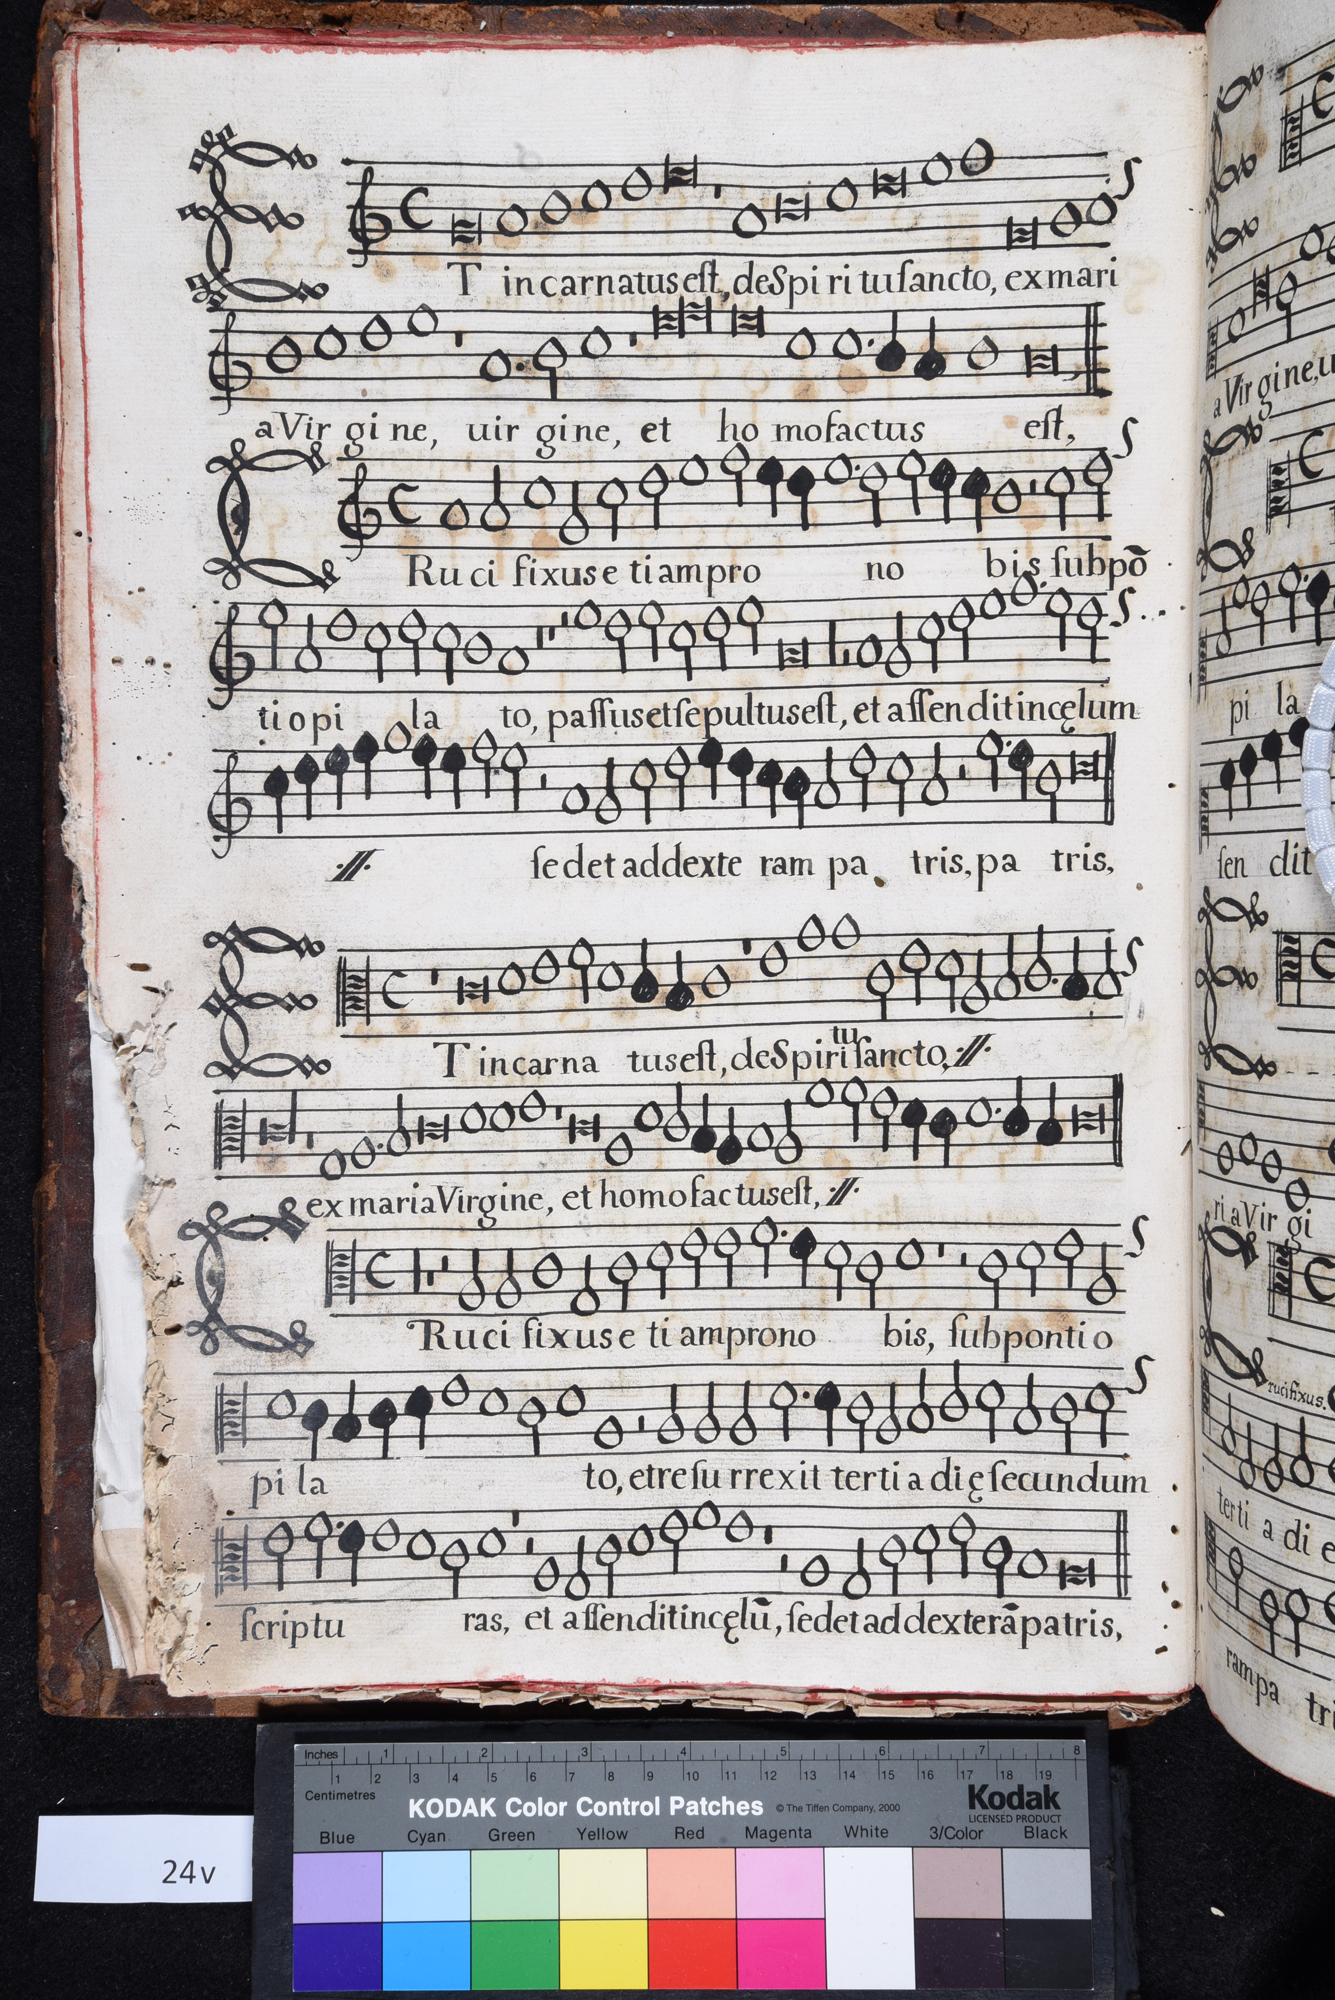 ET incarnatus eſt, de Spi ri tu ſancto, ex mari
a Vir gi ne, uir gine, et ho mo factus eſt,
CRuci fixus e ti am pro no bis ſub põ
ti o pi la to, paſſus et ſepultus eſt, et aſſen dit in cęlum
·//· ſedet ad dexte ram pa tris, pa tris,
ET incarna tus eſt, de Spiritu ſancto, ·//·
ex maria Virgine, et homo factus eſt, ·//·
CRuci fixus e ti am pro no bis, ſub ponti o
pi la to, et reſu rrexit terti a dię ſecundum
ſcriptu ras, et aſſendit in cęlū, ſedet ad dexterā patris,
a Vir gine, u
pi la
ſen dit
ri a Vir gi
rucifixus.
terti a di e
ram pa tri
Inches 1 2 3 4 5 6 7 8
1 2 3 4 5 6 7 8 9 10 11 12 13 14 15 16 17 18 19
Centimetres
KODAK Color Control Patches © The Tiffen Company, 2000 Kodak
LICENSED PRODUCT
Blue Cyan Green Yellow Red Magenta White 3/Color Black
24v